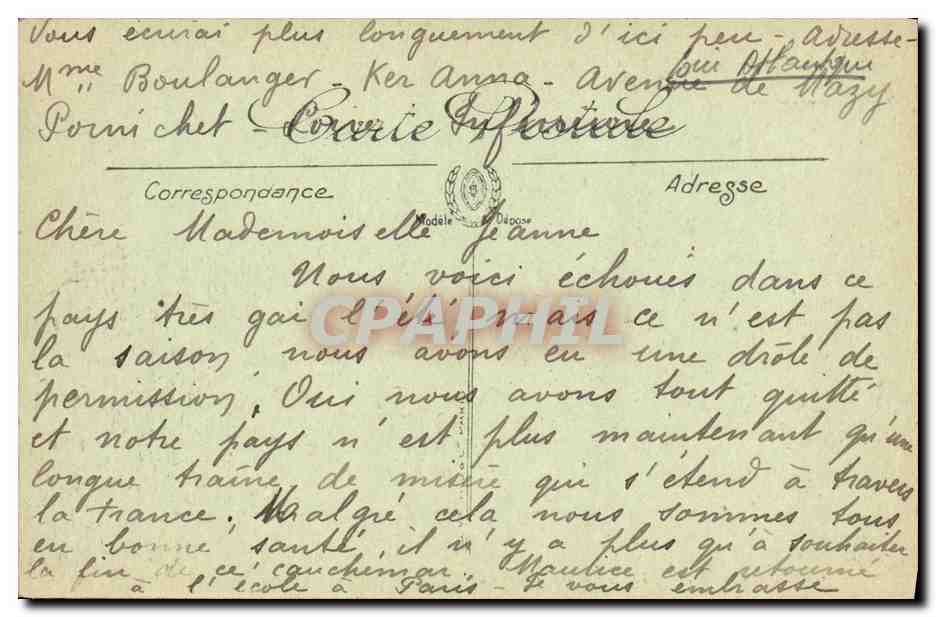 Vous écrirai plus longuement d'ici peu - Adresse -
Mme Boulanger - Ker Anna - Avenue de Mazy
Pornichet - Loire Inférieure
Carte Postale
Correspondance
Adresse
Modèle Déposé
Chère Mademoiselle Jeanne
Nous voici échoués dans ce
pays très gai l'été, mais ce n'est pas
la saison, nous avons eu une drôle de
permission. Oui nous avons tout quitté
et notre pays n'est plus maintenant qu'une
longue traîne de misère qui s'étend à travers
la France. Malgré cela nous sommes tous
en bonne santé, il n'y a plus qu'à souhaiter
la fin de ce cauchemar. Maurice est retourné
à l'école à Paris - Je vous embrasse
CPAPHIL